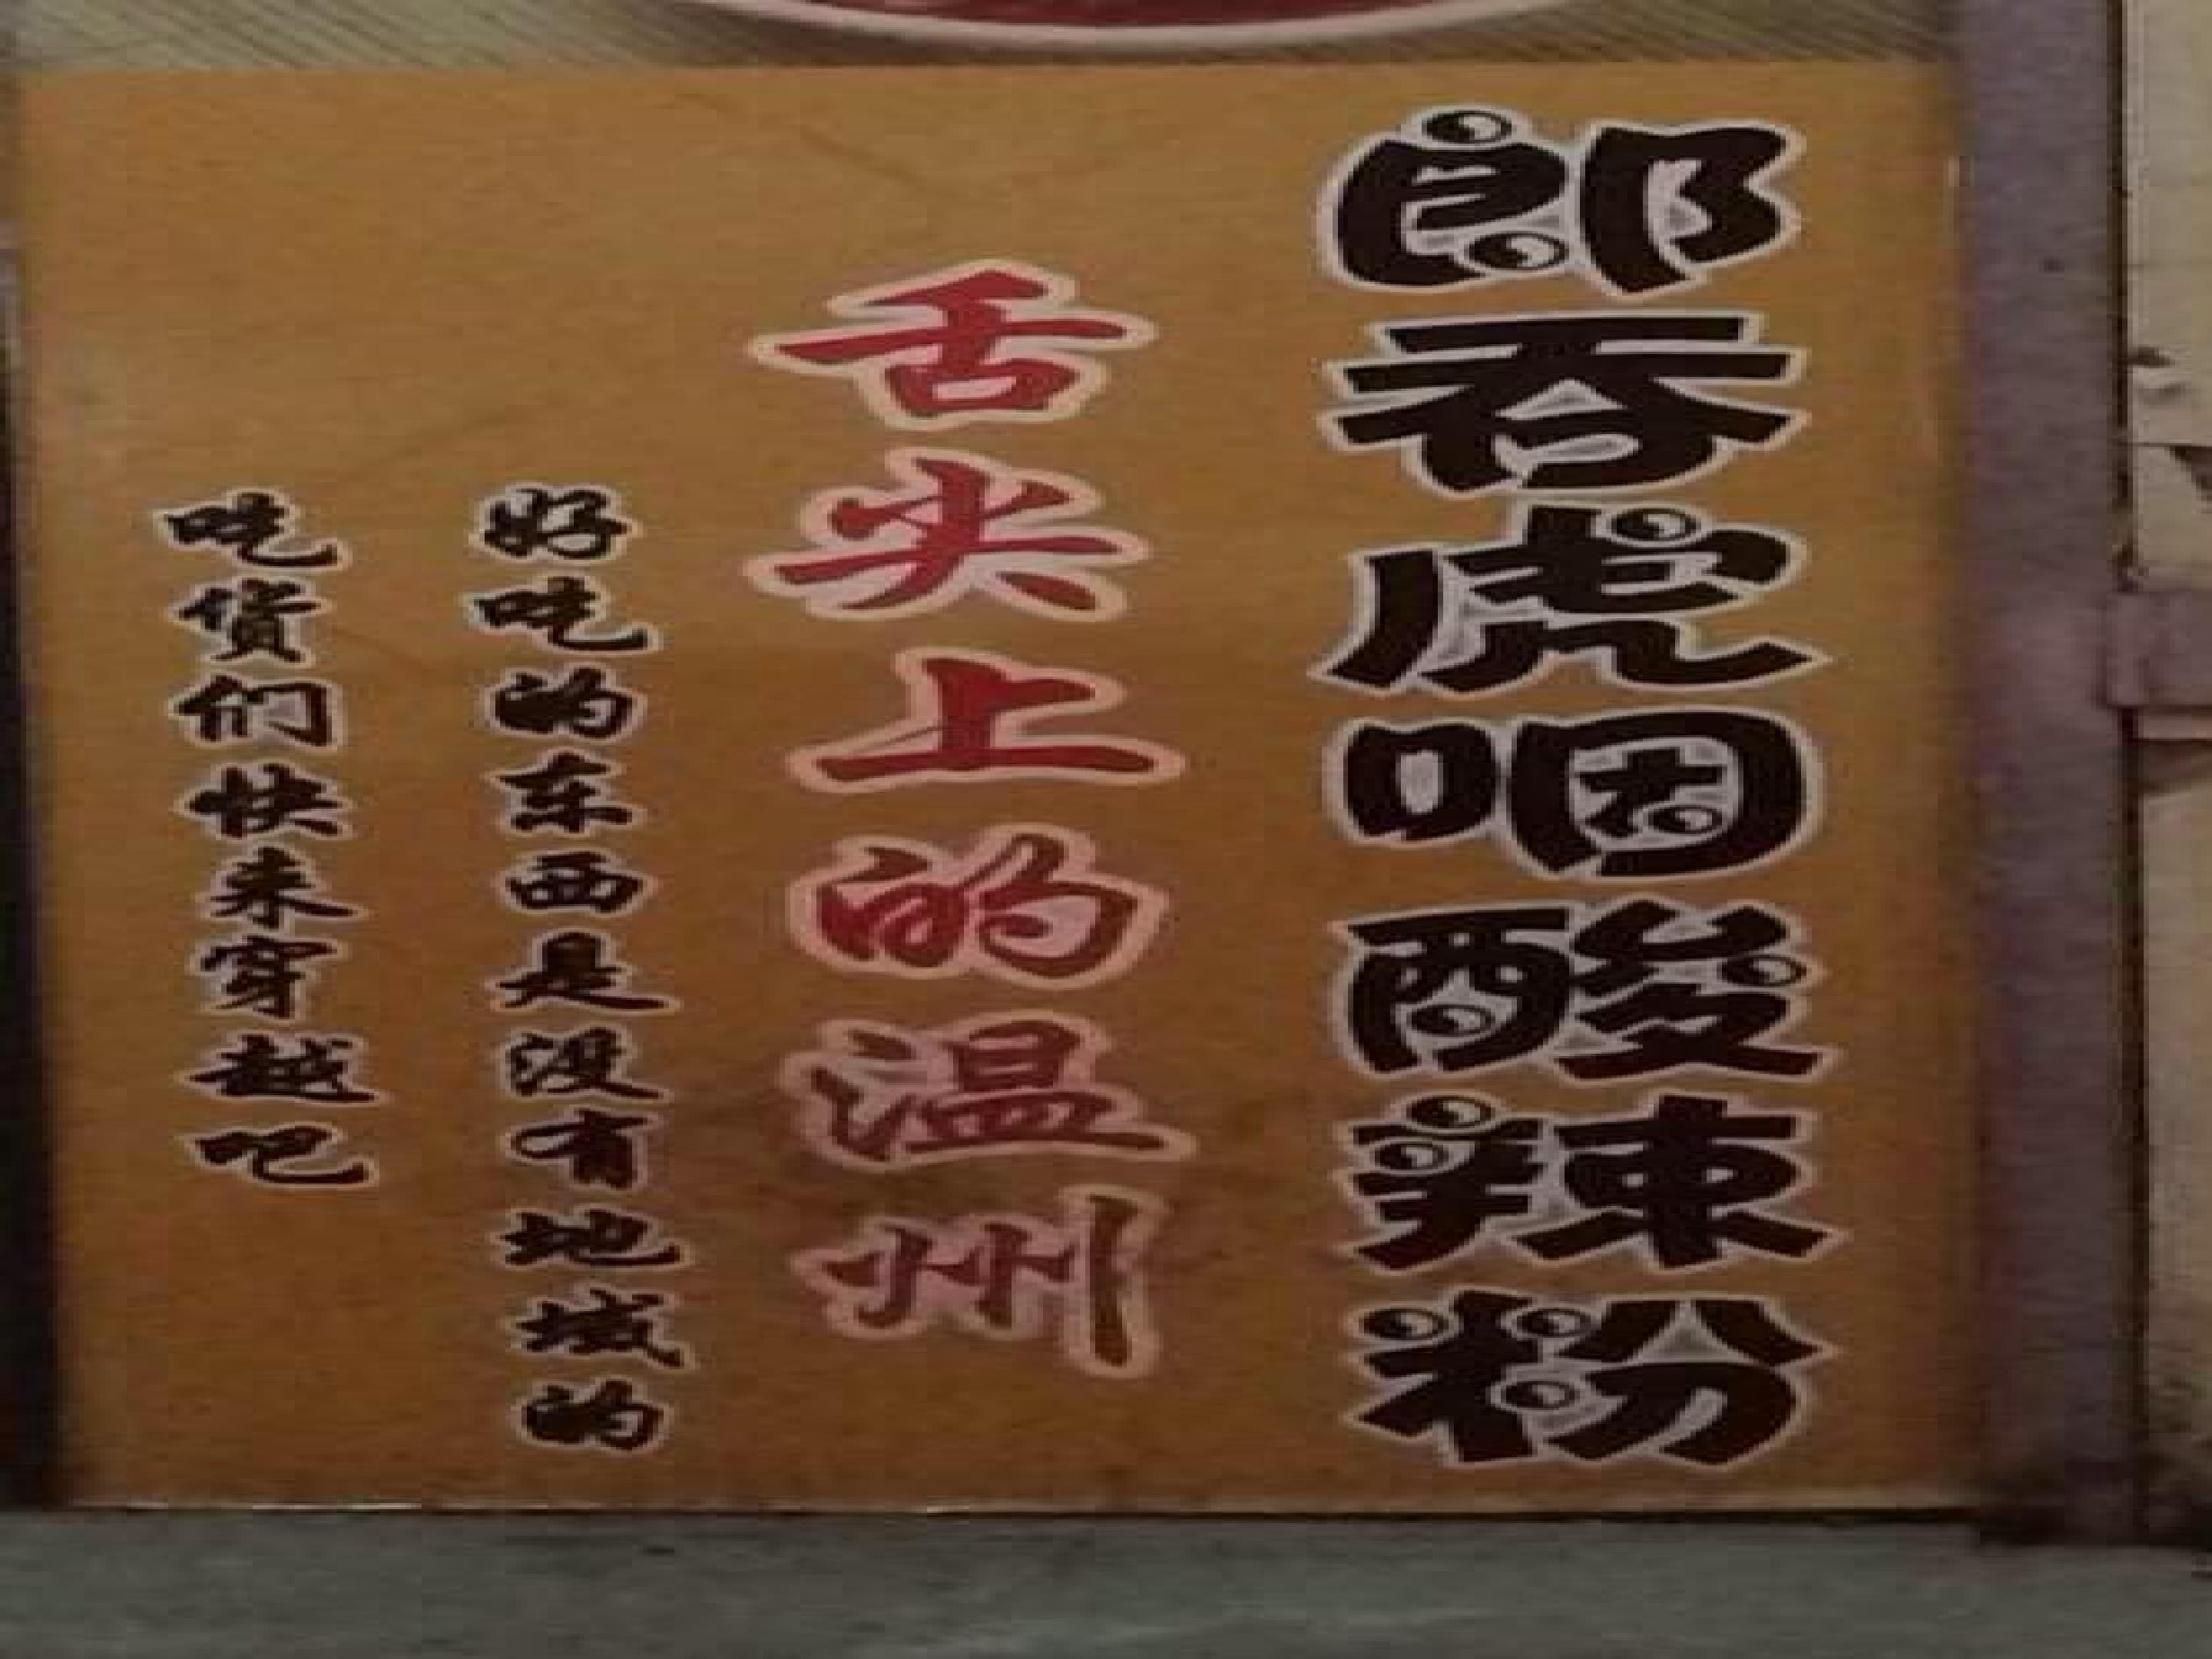 郎吞虎咽酸辣粉
舌尖上的温州
好吃的东西是没有地域的
吃货们快来穿越吧